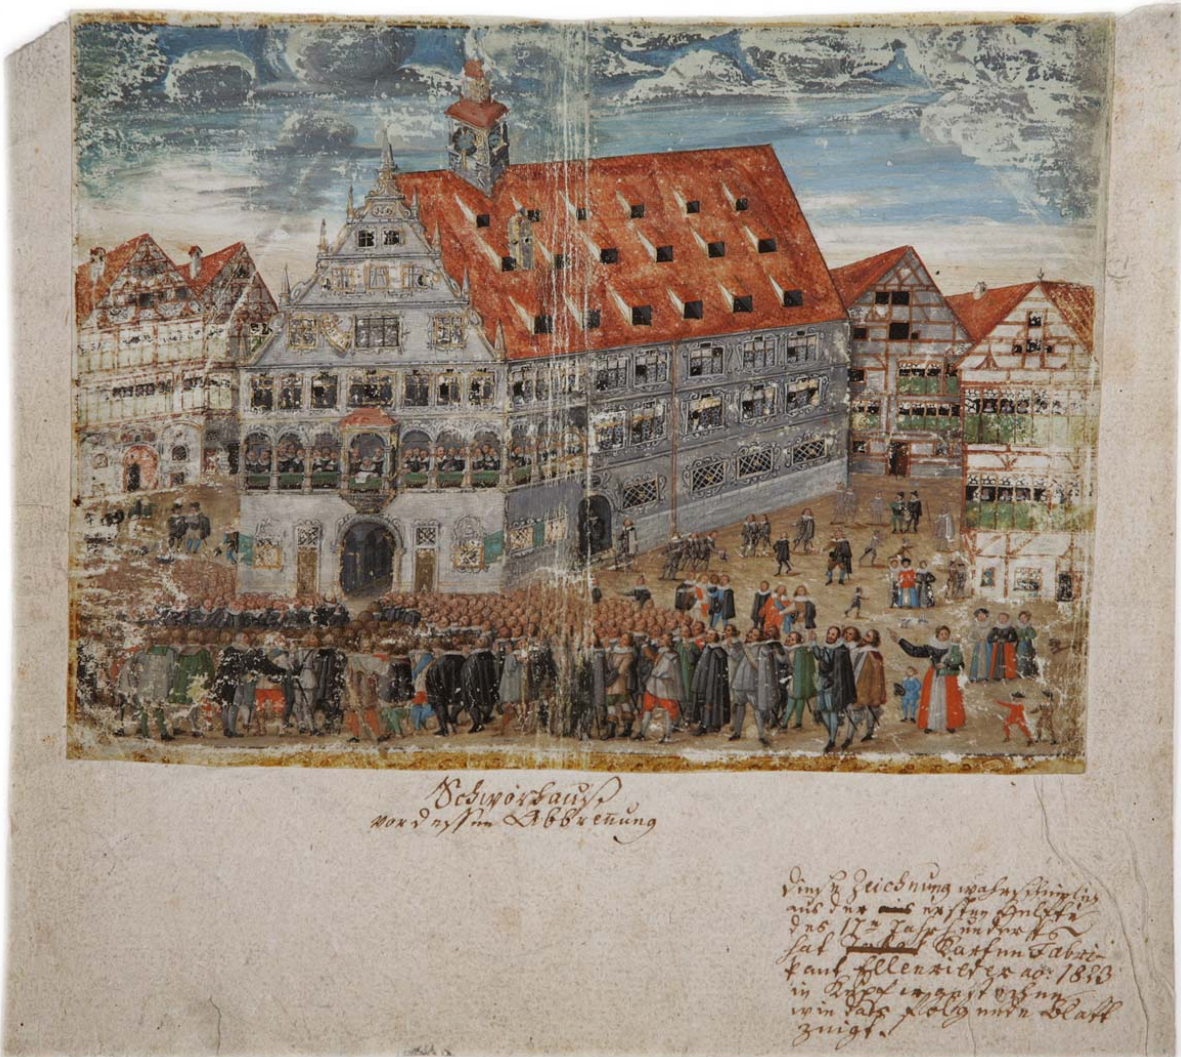 Schwörhauß
vor dessen Abbrennung
Diese Zeichnung wahrscheinlich
aus der ersten Helfte
des 17n Jahrhunderts
hat Karten Fabri-
kant Ellenrieder ao: 1823
in Kupf
wie das folgende Blatt
zeigt.